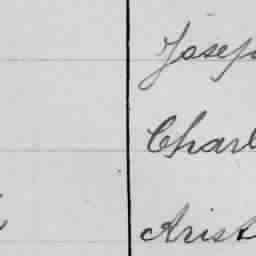 Josep
Charl
Arist